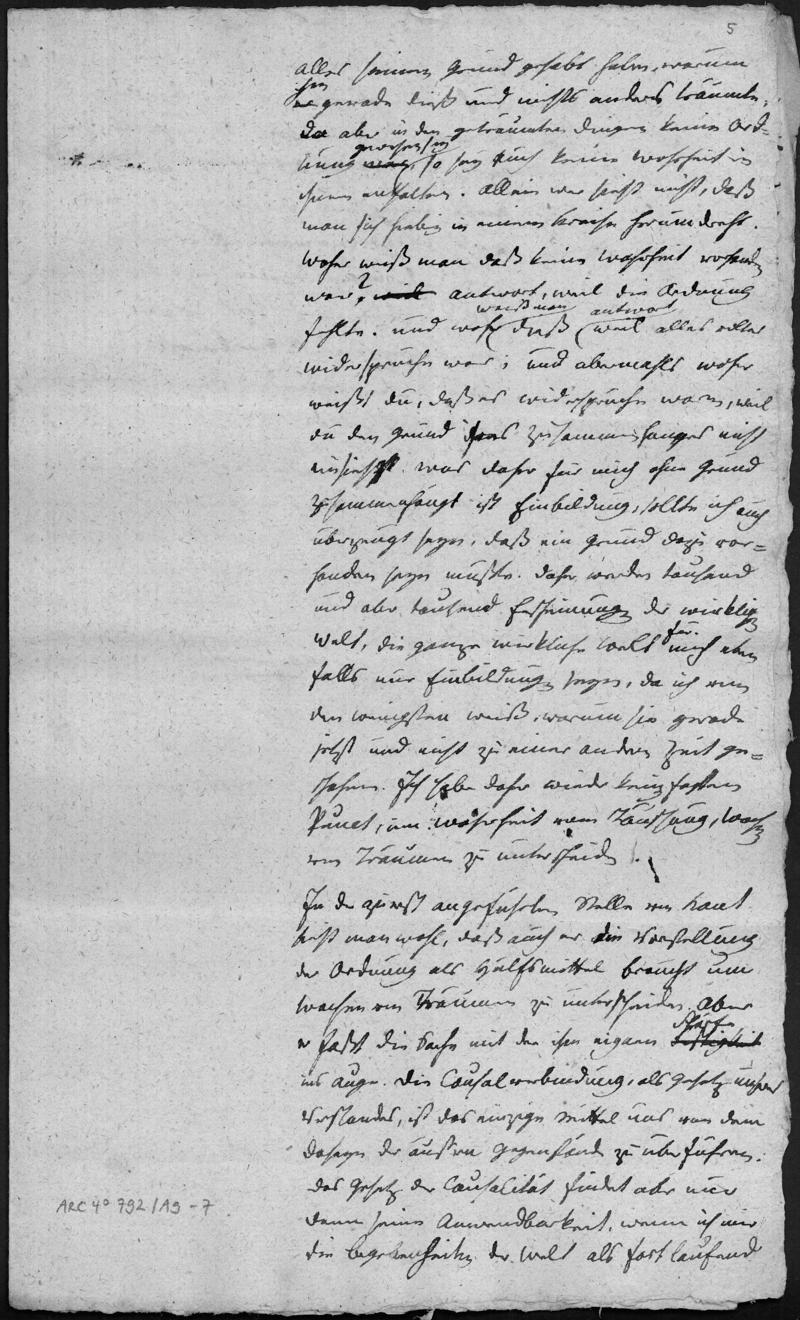 5
alles seinen Grund gehabt haben, warum
ihm
gerade dieß und nichts anders träumte,
da aber in den geträumten Dingen keine Ord-
gewesen sey
nung war, so sey auch keine Wahrheit in
ihnen enthalten. Allein wer sieht nicht, daß
man sich hiebei in einem Kreise herumdreht.
Woher weiß man daß keine Wahrheit vorhanden
war? weil antwort, weil die Ordnung
weiß man antwort
fehlte. und woher dieß weil alles voller
widersprüche war; und abermahls woher
weißt du, daß es widersprüche waren, weil
du den Grund des Zusammenhanges nicht
einsiehst. was daher für mich ohne Grund
zusammenhängt ist Einbildung, sollte ich auch
überzeugt seyn, daß ein Grund dazu vor-
handen seyn müßte. daher werden tausend
und aber tausend Erscheinungen der wirklichen
Welt, die ganze wirkliche Welt für mich eben
falls nur Einbildungen seyn, da ich von
den wenigsten weiß, warum sie gerade
jetzt und nicht zu einer andern Zeit ge-
schehen. Ich habe daher wieder keinen festen
Punct, um Wahrheit von Täuschung, Wachen
von Träumen zu unterscheiden.
In der zuerst angeführten Stelle von Kant
sieht man wohl, daß auch er die Vorstellung
der Ordnung als Hülfsmittel braucht um
Wachen von Träumen zu unterscheiden. Aber
Schärfe
er faßt die Sache mit der ihm eigenen
ins Auge. Die Causalverbindung, als Gesetz unsers
Verstandes, ist das einzige Mittel uns von dem
Daseyn der äußern Gegenstände zu überführen.
das Gesetz der Causalität findet aber nur
dann seine Anwendbarkeit, wenn ich mir
die Begebenheiten der Welt als fortlaufend
ARC 4° 792/A9-7